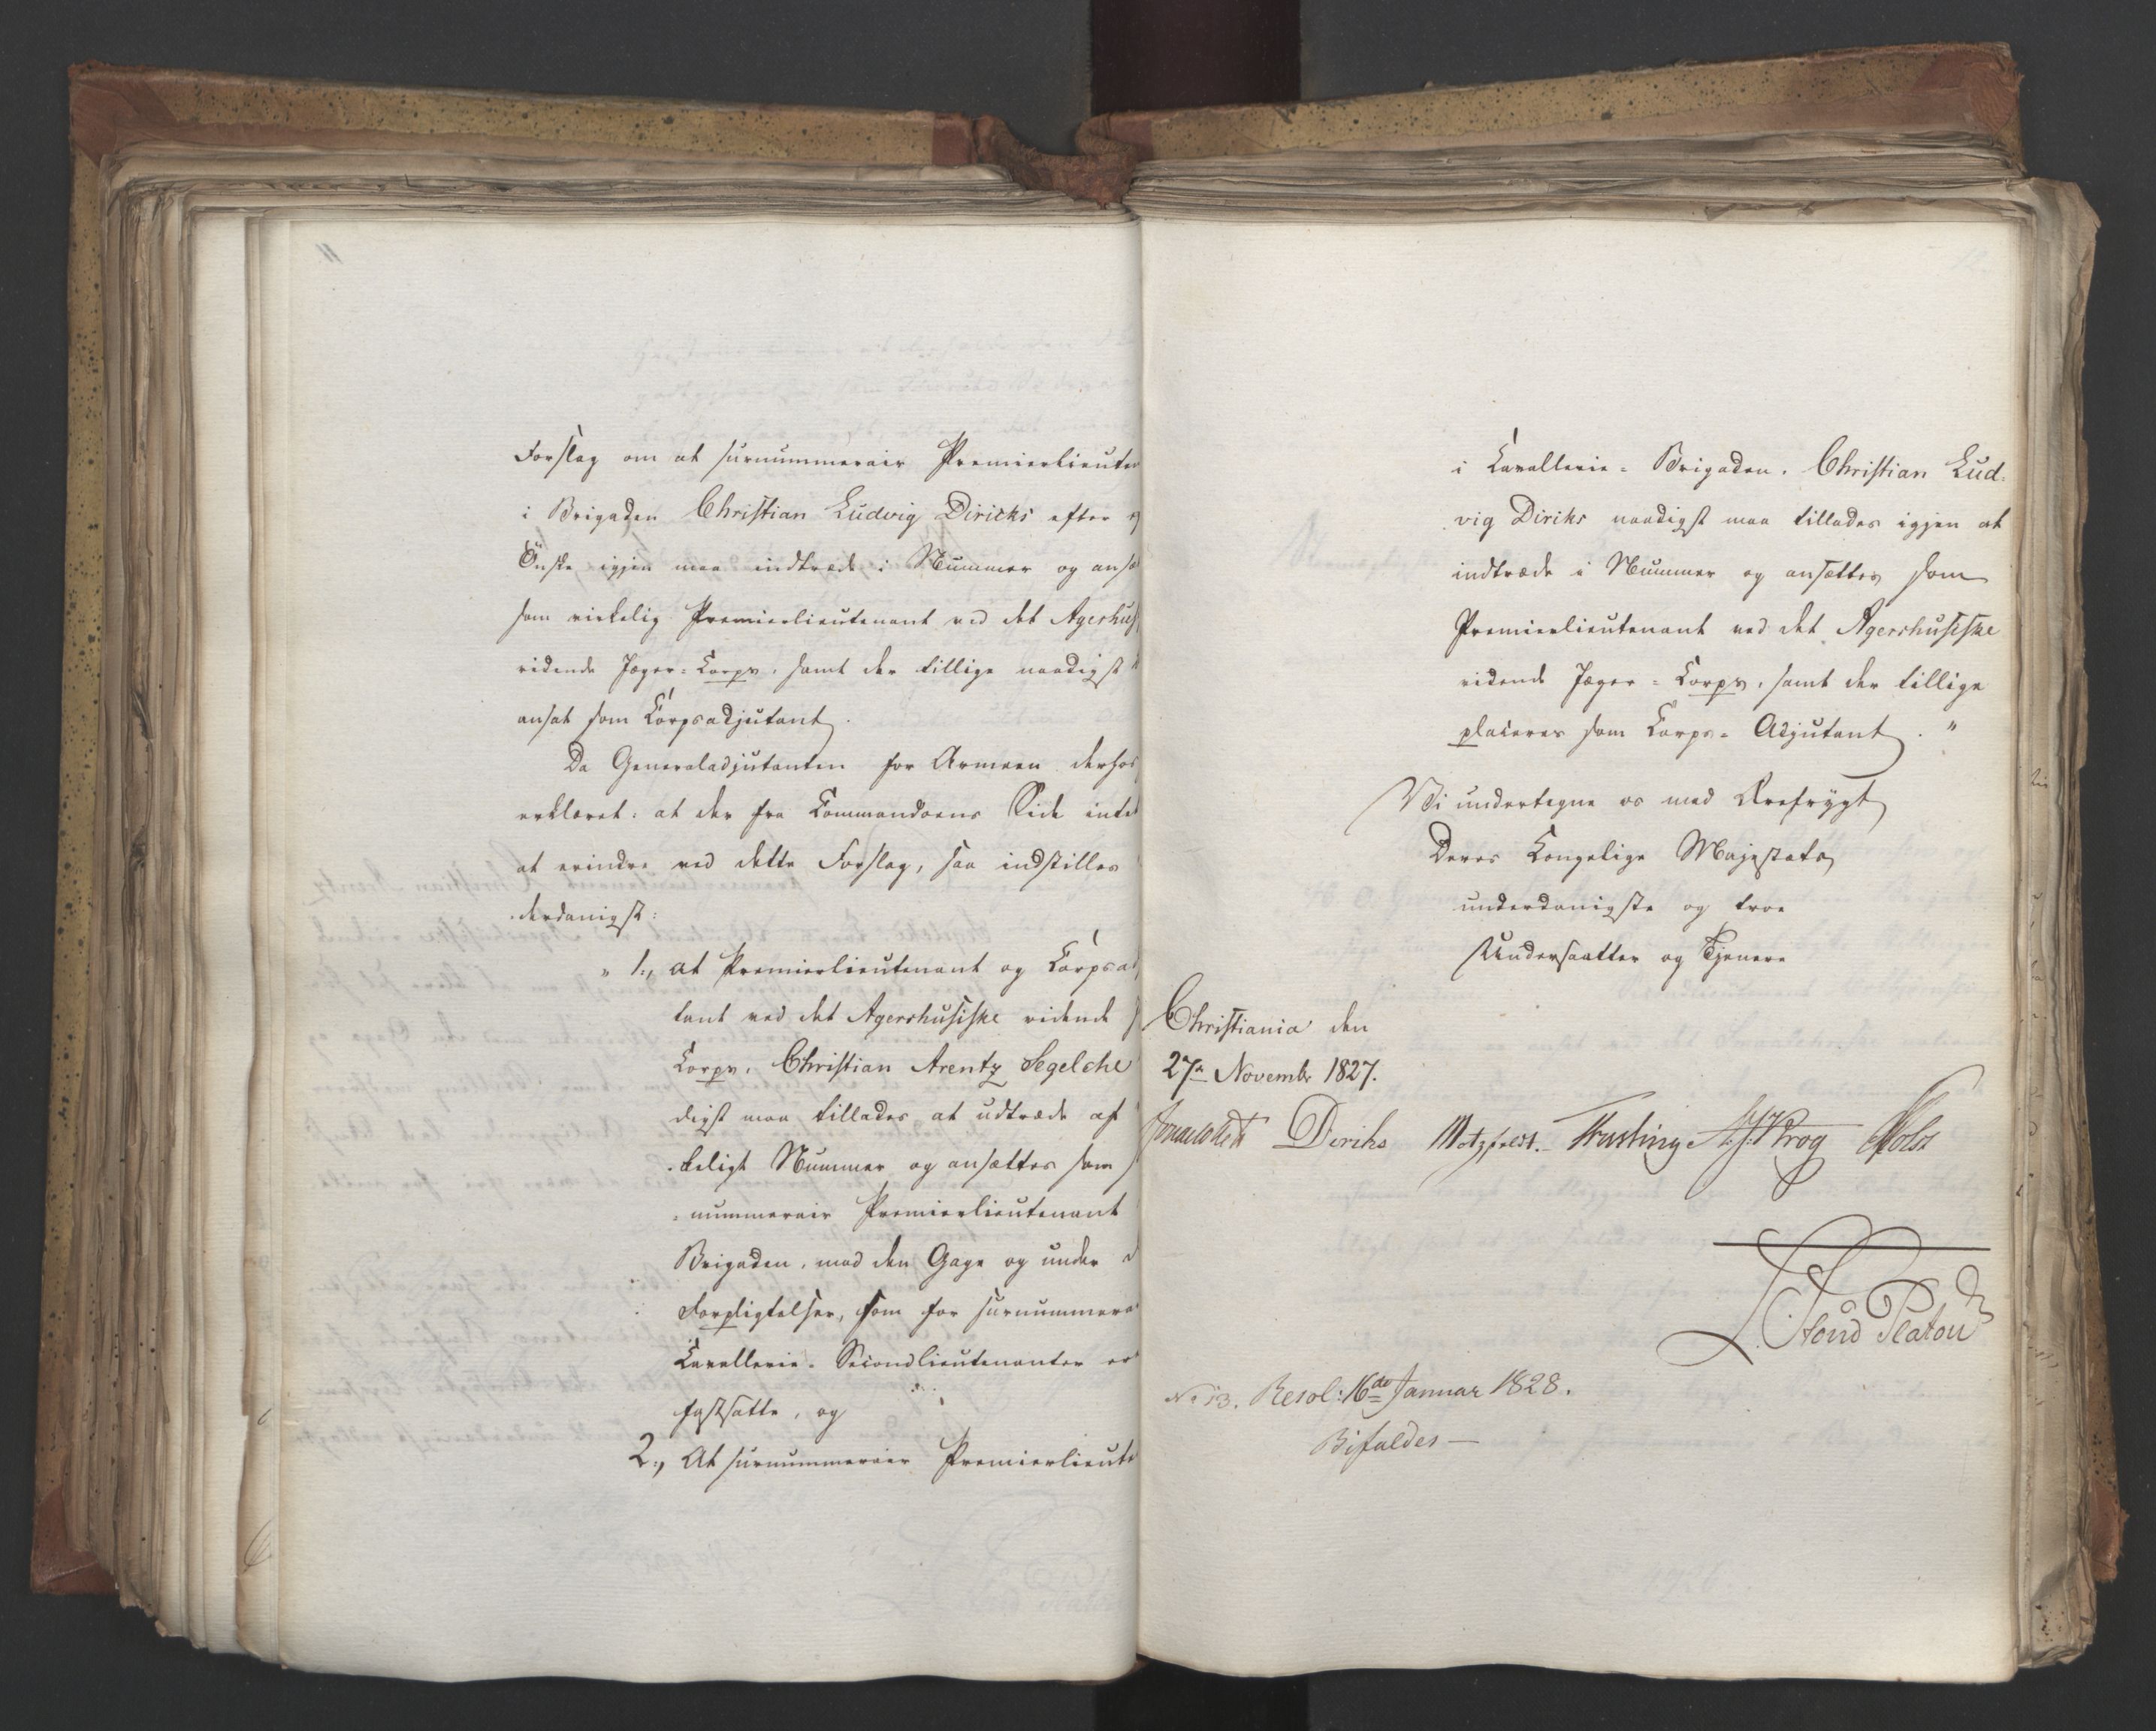 Forslag om at surnummerair Premierlieuten
i Brigaden Christian Ludvig Diricks efter
Önske igjen maa indtræde i Nummer og ansæ
som virkelig Premierlieutenant ved det Agershus
ridende Jæger-Corps, samt der tillige naadigst
ansat som Corpsadjutant.
Da Generaladjutanten for Armeen derhos
erklæret: at der fra Commandoens Side intet
at erindre ved dette Forslag, saa indstilles
derdanigst:
" 1., at Premierlieutenant og Corpsad
tant ved det Agershusiske ridende J
Corps, Christian Arentz Segelcke
digst maa tillades at udtræde af
keligt Nummer og ansættes som
nummerair Premierlieutenant
Brigaden, med den Gage og under d
Forpligtelser, som for surnummera
Cavallerie-Secondlieutenanter er
fastsatte, og
2., At surnummerair Premierlieute
i Cavallerie-Brigaden, Christian Lud-
vig Diriks naadigst maa tillades igjen at
indtræde i Nummer og ansættes som
Premierlieutenant ved det Agershusiske
ridende Jæger-Corps, samt der tillige
placeres som Corps-Adjutant. "
Vi undertegne os med Ærefrygt
Deres Kongelige Majestæts
underdanigste og troe
Undersaatter og Tjenere
Christiania den
27de Novembr 1827.
Diriks Motzfeldt. Krog Holst
Platou
No 13. Resol: 16de Januar 1828.
Bifaldes —